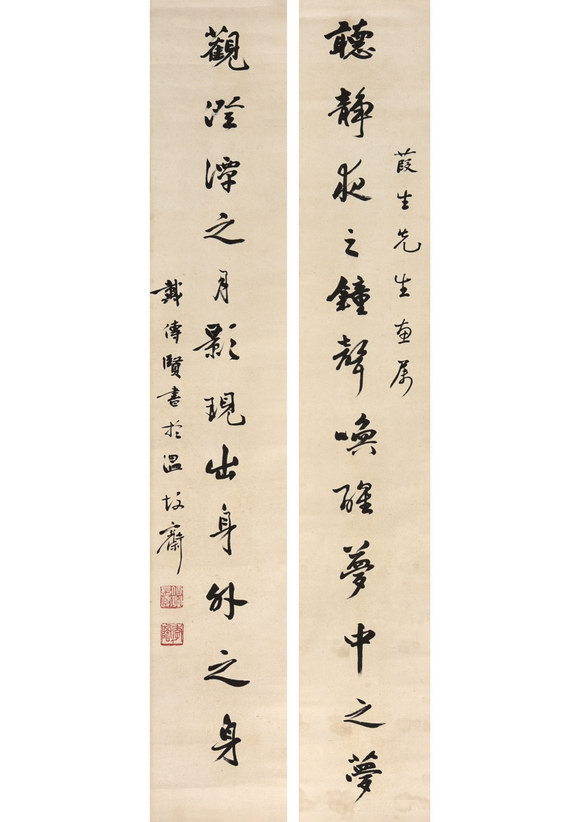 葭生先生惠屬
聽靜夜之鐘聲喚醒夢中之夢
觀澄潭之月影現出身外之身
戴傳賢書於溫故齋